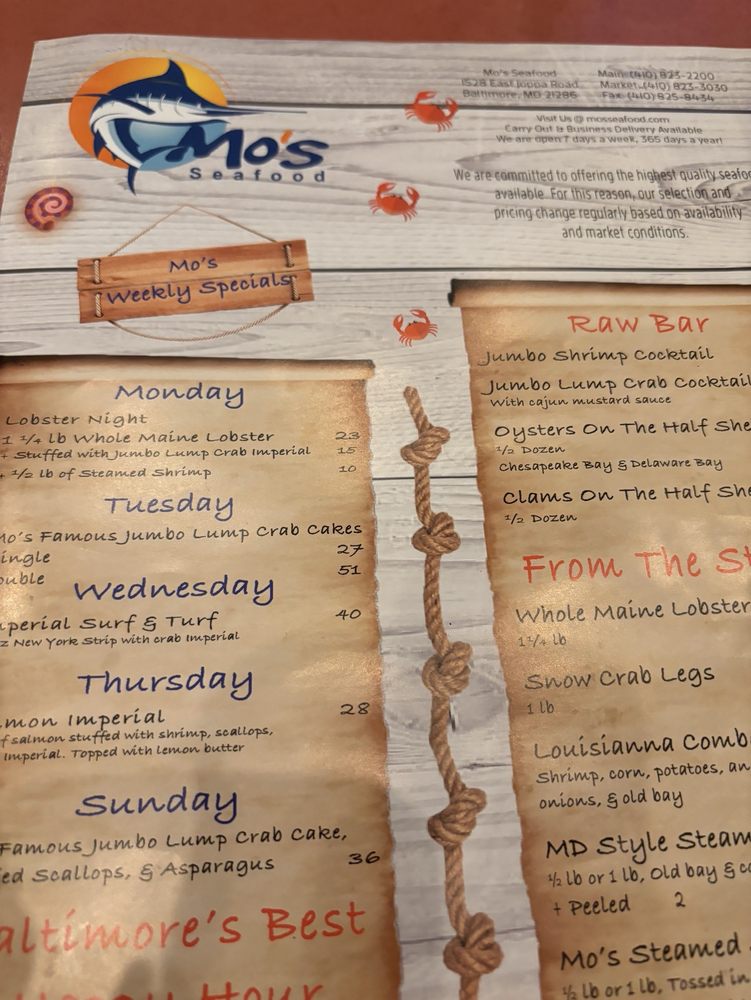 Mo's
Seafood
Mo's Seafood
1528 East Joppa Road
Baltimore, MD 21286
Main: (410) 823-2200
Market: (410) 823-3030
Fax: (410) 825-8434
Visit Us @ mosseafood.com
Carry Out & Business Delivery Available
We are open 7 days a week, 365 days a year!
We are committed to offering the highest quality seafoo
available. For this reason, our selection and
pricing change regularly based on availability
and market conditions.
Mo's
Weekly Specials
Monday
Lobster Night
1 1/4 lb Whole Maine Lobster 23
+ Stuffed with Jumbo Lump Crab Imperial 15
+ 1/2 lb of Steamed Shrimp 10
Tuesday
Mo's Famous Jumbo Lump Crab Cakes
ingle 27
ouble 51
Wednesday
perial Surf & Turf 40
z New York Strip with crab Imperial
Thursday
mon Imperial 28
f salmon stuffed with shrimp, scallops,
Imperial. Topped with lemon butter
Sunday
Famous Jumbo Lump Crab Cake,
ed Scallops, & Asparagus 36
altimore's Best
Happy Hour
Raw Bar
Jumbo Shrimp Cocktail
Jumbo Lump Crab Cocktail
With cajun mustard sauce
Oysters On The Half She
1/2 Dozen
Chesapeake Bay & Delaware Bay
Clams On The Half She
1/2 Dozen
From The St
Whole Maine Lobster
1 1/4 lb
Snow Crab Legs
1 lb
Louisianna Comb
Shrimp, corn, potatoes, an
onions, & old bay
MD Style Steam
1/2 lb or 1 lb, Old bay & co
+ Peeled 2
Mo's Steamed
1/2 lb or 1 lb, Tossed in